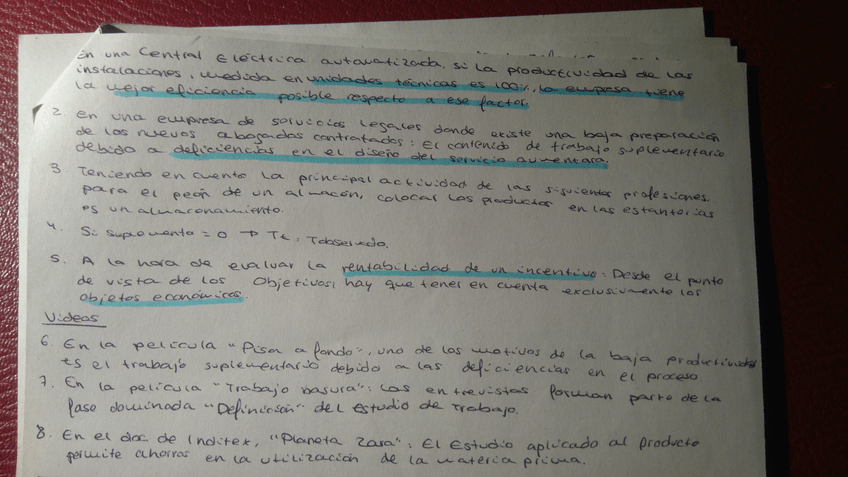 En una Central Eléctrica automatizada, si la productividad de las
instalaciones, medida en unidades técnicas es 100%, la empresa tiene
la mejor eficiencia posible respecto a ese factor.
2. En una empresa de servicios legales donde existe una baja preparación
de los nuevos abogados contratados: El contenido de trabajo suplementario
debido a deficiencias en el diseño del servicio aumentará.
3. Teniendo en cuenta la principal actividad de las siguientes profesiones.
para el peón de un almacén, colocar los productos en las estanterías
es un almacenamiento.
4. Si suplemento = 0 → Tt = Tobservado.
5. A la hora de evaluar la rentabilidad de un incentivo: Desde el punto
de vista de los Objetivos, hay que tener en cuenta exclusivamente los
objetos económicos.
Videos
6. En la película "Pisa a fondo", uno de los motivos de la baja productividad
es el trabajo suplementario debido a las deficiencias en el proceso.
7. En la película "Trabajo basura": Las entrevistas forman parte de la
fase dominada "Definición" del Estudio de Trabajo.
8. En el doc de Inditex, "Planeta Zara": El Estudio aplicado al producto
permite ahorros en la utilización de la materia prima.